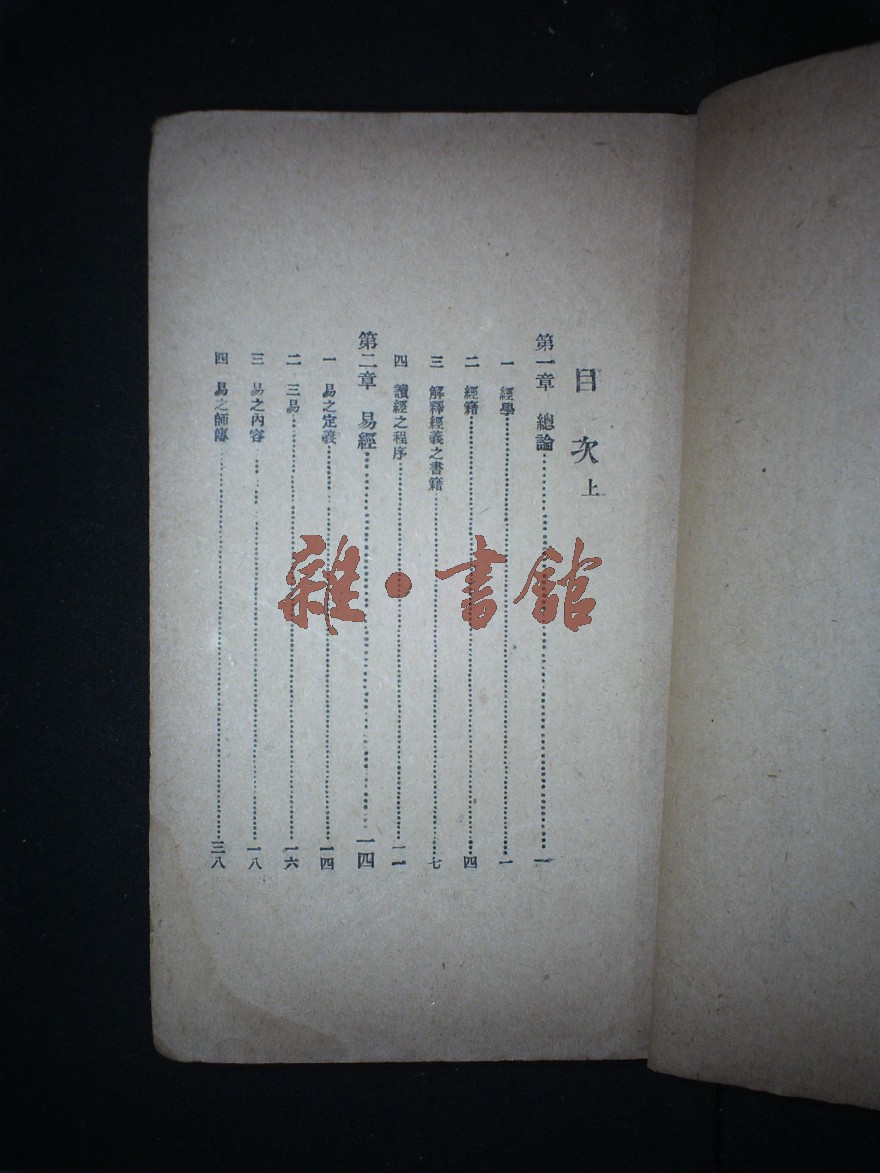 目次上
第一章 總論 一
一 經學 一
二 經籍 四
三 解釋經義之書籍 七
四 讀經之程序 一一
第二章 易經 一四
一 易之定義 一四
二 三易 一六
三 易之內容 一八
四 易之師傳 三八
雜·書館